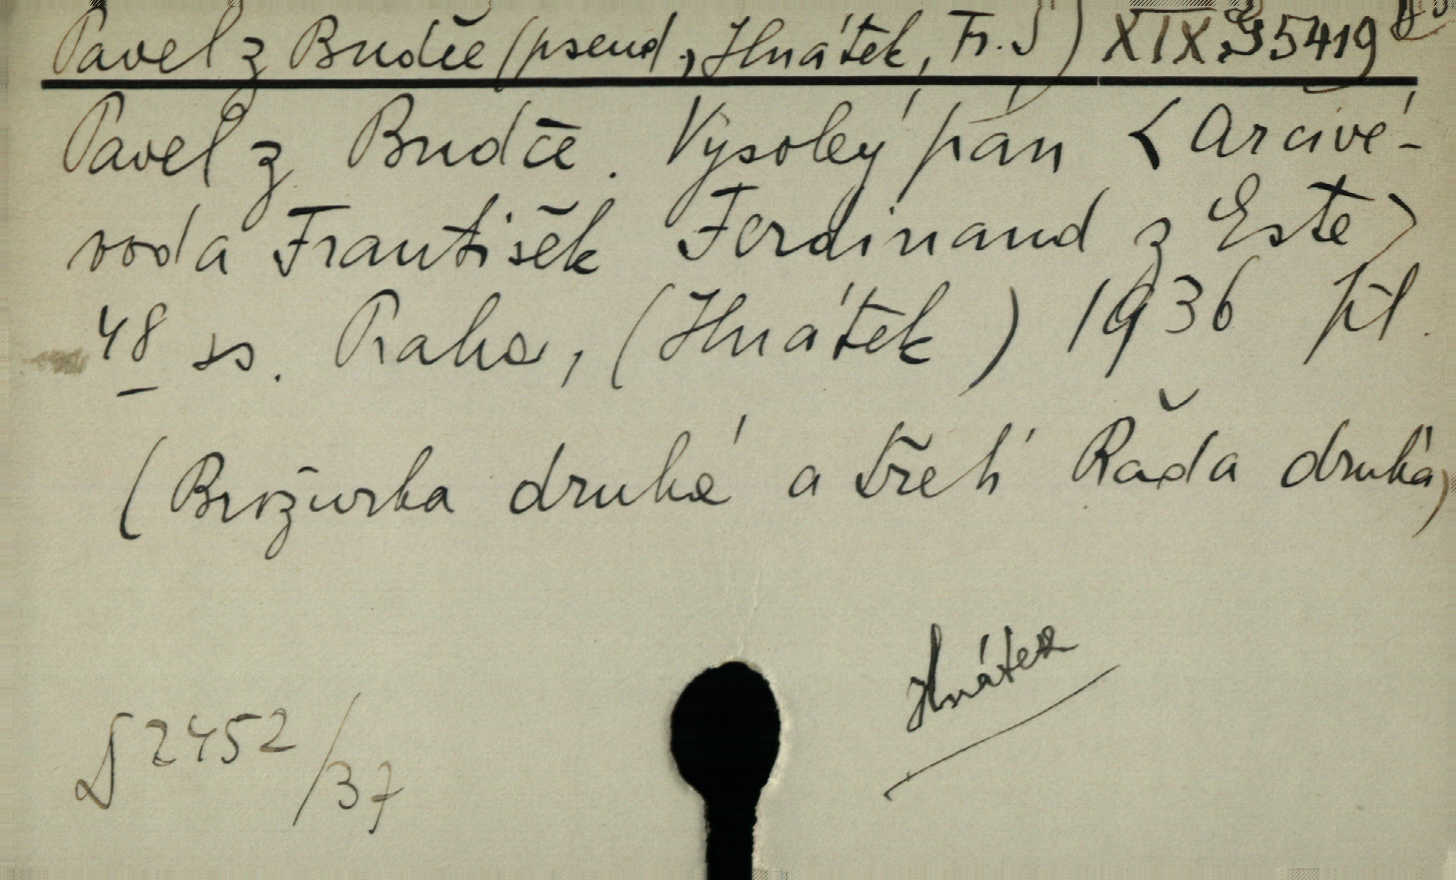 Pavel z Budče (pseud, Hnátek, Fr. J) XIX 35419
Pavel z Budče. Vysoký pán <Arcivé-
voda František Ferdinand z Este>
48 ss. Praha, (Hnátek) 1936 pil.
(Brožurka druhá a třetí Řada druhá)
Hnátek
§ 2452/37